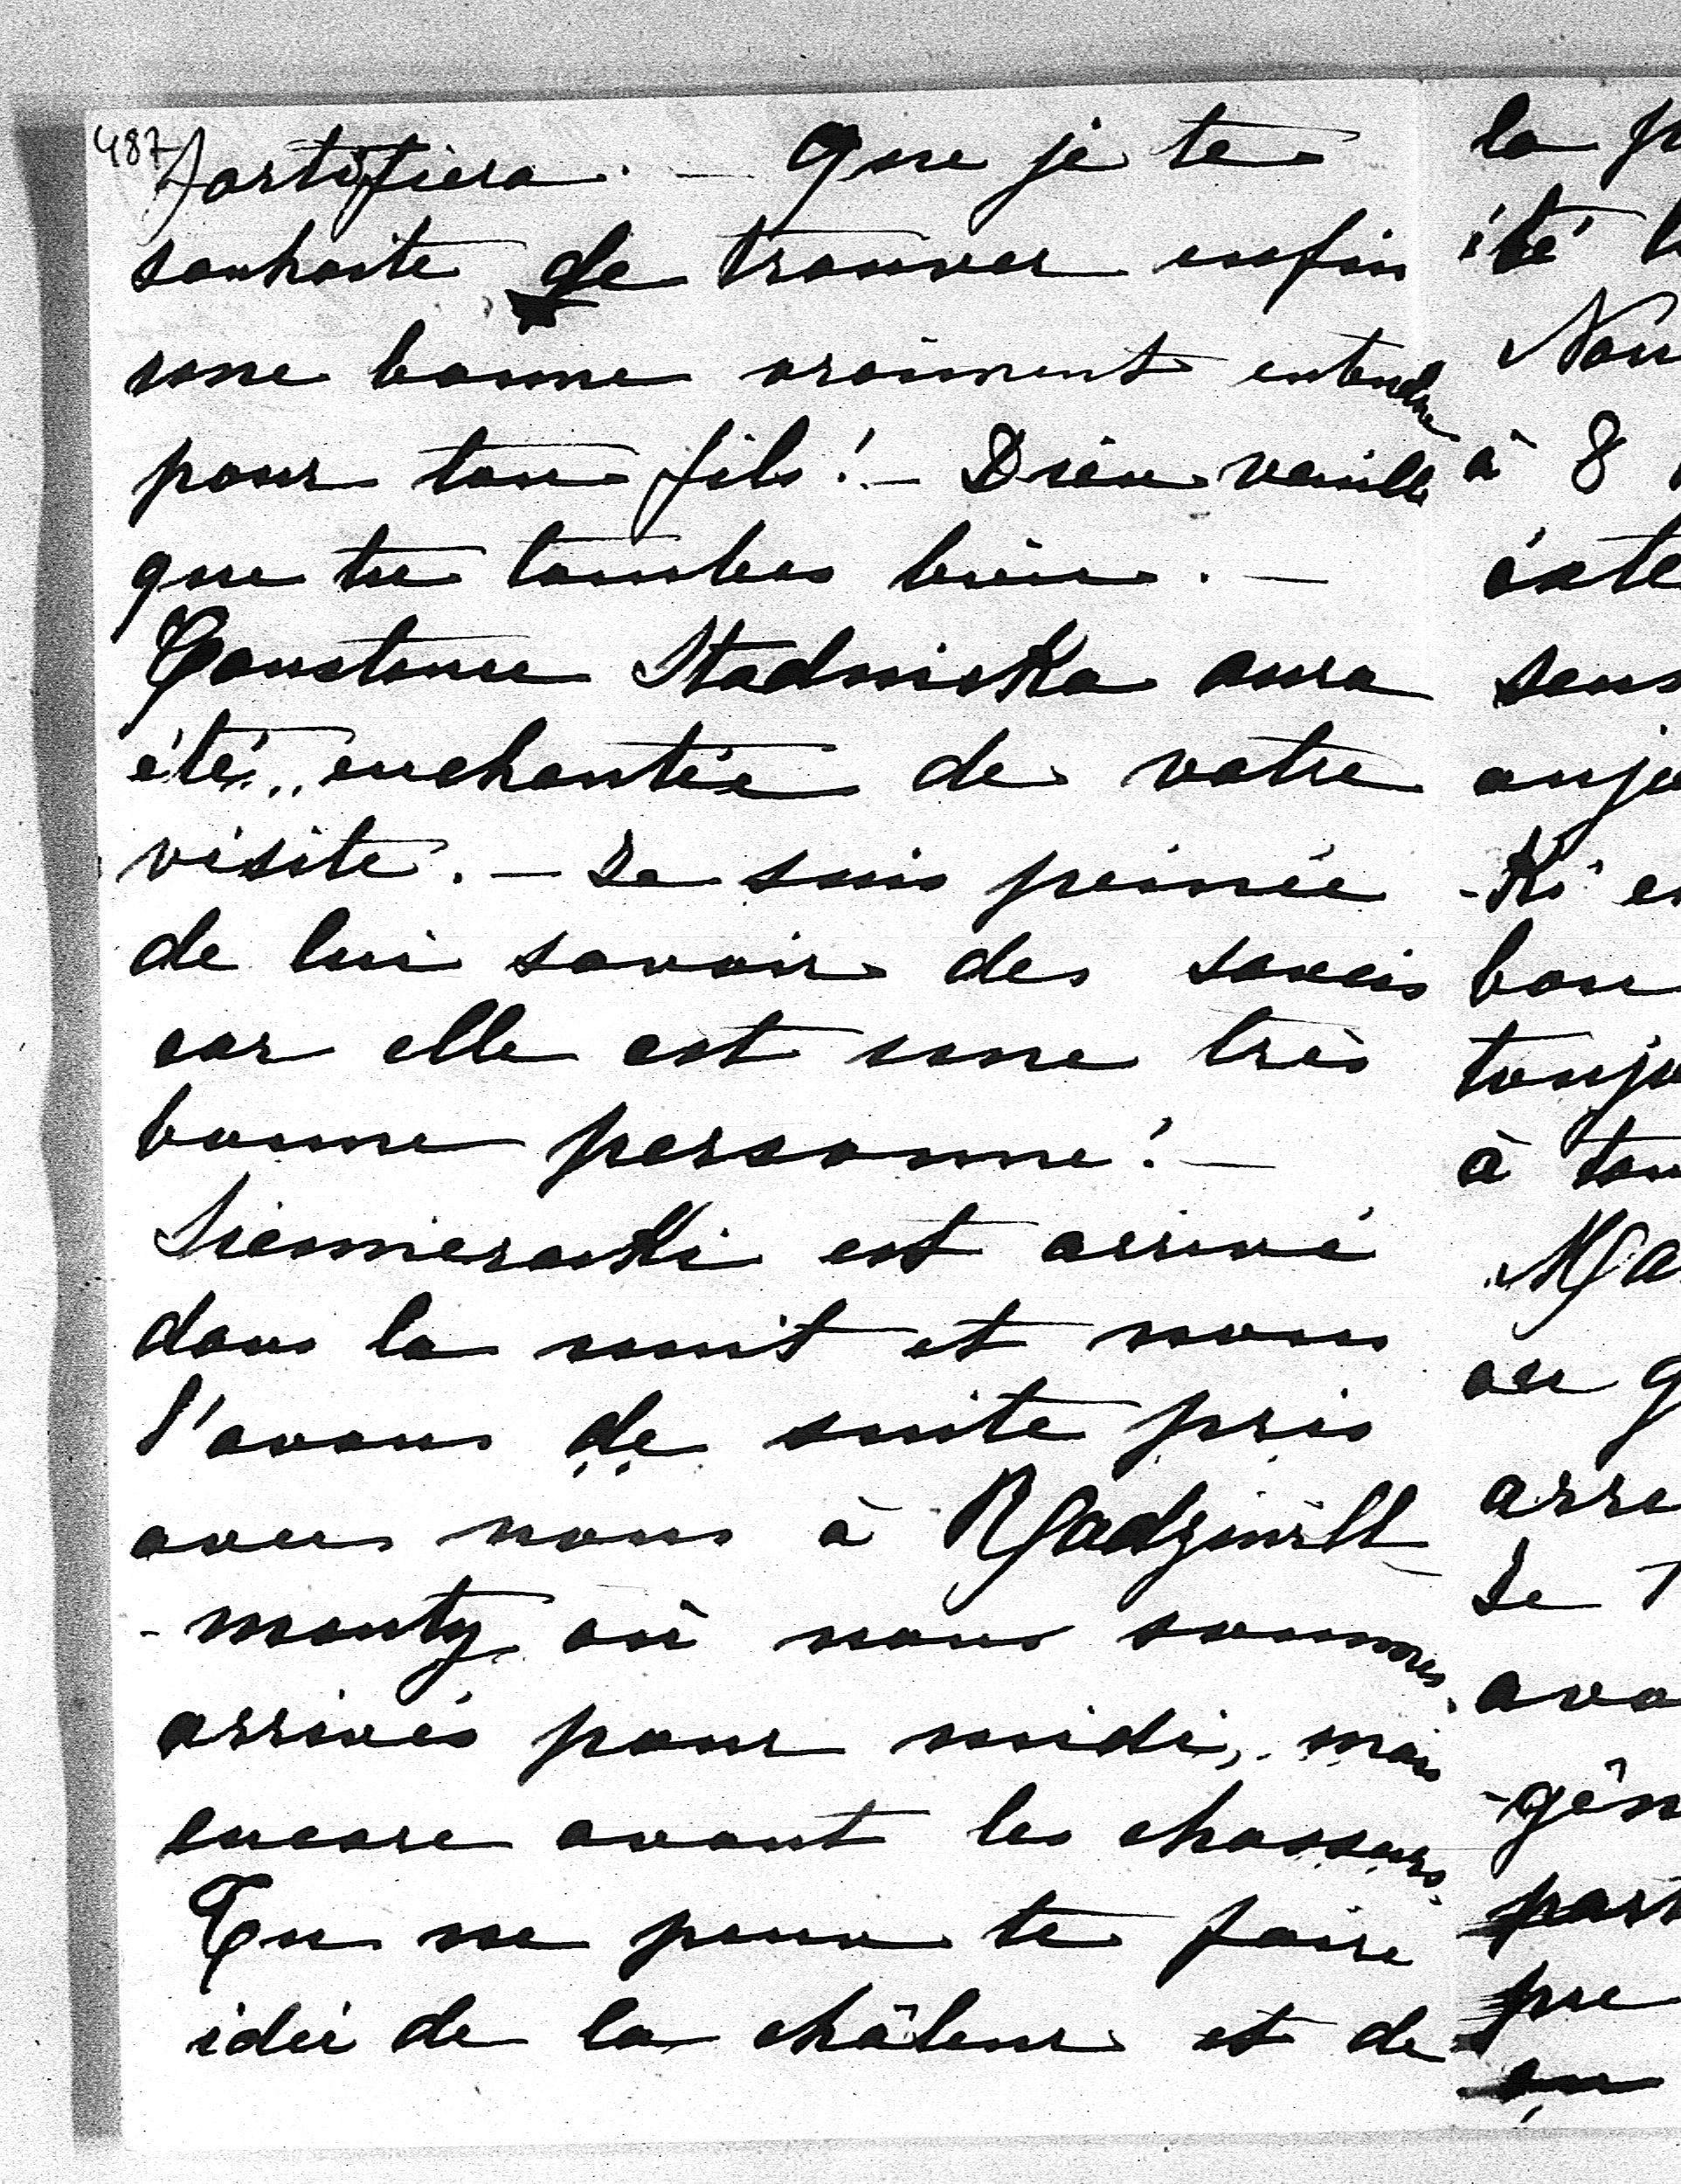 487
fortifiera. — Que je te
souhaite de trouver enfin
une bonne vraiment entendue
pour ton fils! — Dieu veuille
que tu tombes bien. —
Constance Stadnicka aura
été enchantée de votre
visite. — Je suis peinée
de lui savoir des soucis
car elle est une très
bonne personne! —
Siemieraski est arrivé
dans la nuit et nous
l'avons de suite pris
avec nous à Radziwill
-monty où nous sommes
arrivés pour midi, mais
encore avant les chasseurs.
Tu ne peux te faire
idée de la châleur et de
la
été
à 8
sens
-ki
bon
à
Je